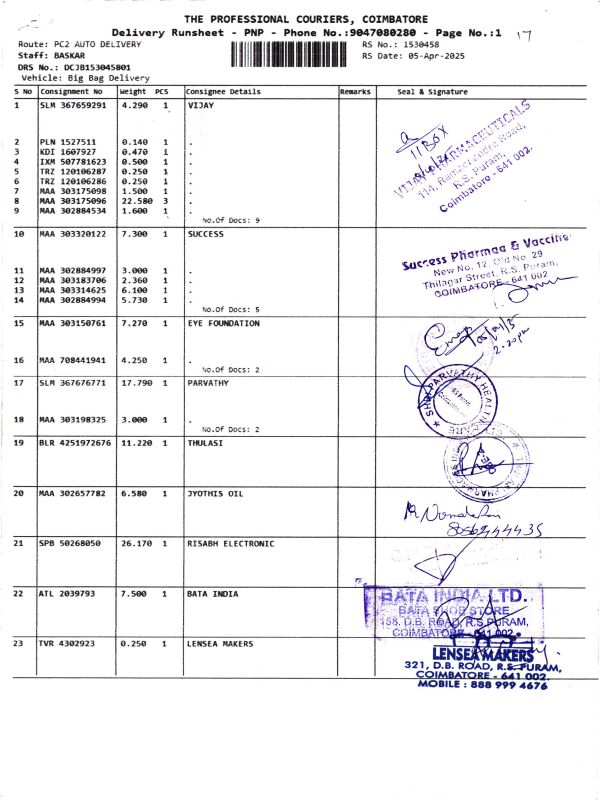 THE PROFESSIONAL COURIERS, COIMBATORE
Delivery Runsheet - PNP - Phone No.:9047080280 - Page No.:1 17
Route: PC2 AUTO DELIVERY RS No.: 1530458
Staff: BASKAR RS Date: 05-Apr-2025
DRS No.: DCJB153045801
Vehicle: Big Bag Delivery
S No Consignment No Weight PCS Consignee Details Remarks Seal & Signature
1 SLM 367659291 4.290 1 VIJAY
11 BOX
VIJAY PHARMACEUTICALS
114, Ramachandra Road,
R.S. Puram,
Coimbatore - 641 002.
2 PLN 1527511 0.140 1 .
3 KDI 1607927 0.470 1 .
4 IXM 507781623 0.500 1 .
5 TRZ 120106287 0.250 1 .
6 TRZ 120106286 0.250 1 .
7 MAA 303175098 1.500 1 .
8 MAA 303175096 22.580 3 .
9 MAA 302884534 1.600 1 .
No.Of Docs: 9
10 MAA 303320122 7.300 1 SUCCESS
Success Pharmaa & Vaccine
New No. 12, Old No. 29
Thilagar Street, R.S. Puram,
COIMBATORE - 641 002
11 MAA 302884997 3.000 1 .
12 MAA 303183706 2.360 1 .
13 MAA 303314625 6.100 1 .
14 MAA 302884994 5.730 1 .
No.Of Docs: 5
15 MAA 303150761 7.270 1 EYE FOUNDATION
2.20pm
16 MAA 708441941 4.250 1 .
No.Of Docs: 2
17 SLM 367676771 17.790 1 PARVATHY
PARVATHY HEALTH CARE
18 MAA 303198325 3.000 1 .
No.Of Docs: 2
19 BLR 4251972676 11.220 1 THULASI
20 MAA 302657782 6.580 1 JYOTHIS OIL
21 SPB 50268050 26.170 1 RISABH ELECTRONIC
22 ATL 2039793 7.500 1 BATA INDIA
BATA INDIA LTD.
BATA SHOE STORE
158, D.B. ROAD, R.S.PURAM,
COIMBATORE - 641 002.
23 TVR 4302923 0.250 1 LENSEA MAKERS
LENSEA MAKERS
321, D.B. ROAD, R.S. PURAM,
COIMBATORE - 641 002.
MOBILE : 888 999 4676